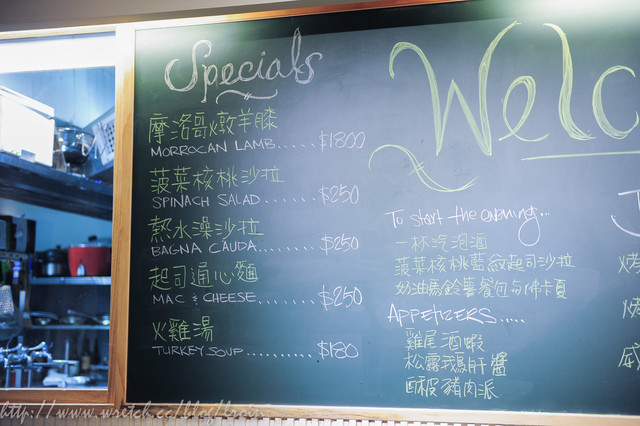 Specials
摩洛哥燉羊膝
MORROCAN LAMB......$1800
菠菜核桃沙拉
SPINACH SALAD.......$250
熱水澡沙拉
BAGNA CAUDA........$250
起司通心麵
MAC & CHEESE........$250
火雞湯
TURKEY SOUP..........$180
Welc
To start the evening...
一杯汽泡酒
菠菜核桃藍紋起司沙拉
奶油馬鈴薯餐包与佛卡夏
APPETIZERS.....
雞尾酒蝦
松露鵝肝醬
酥皮豬肉派
烤
烤
威